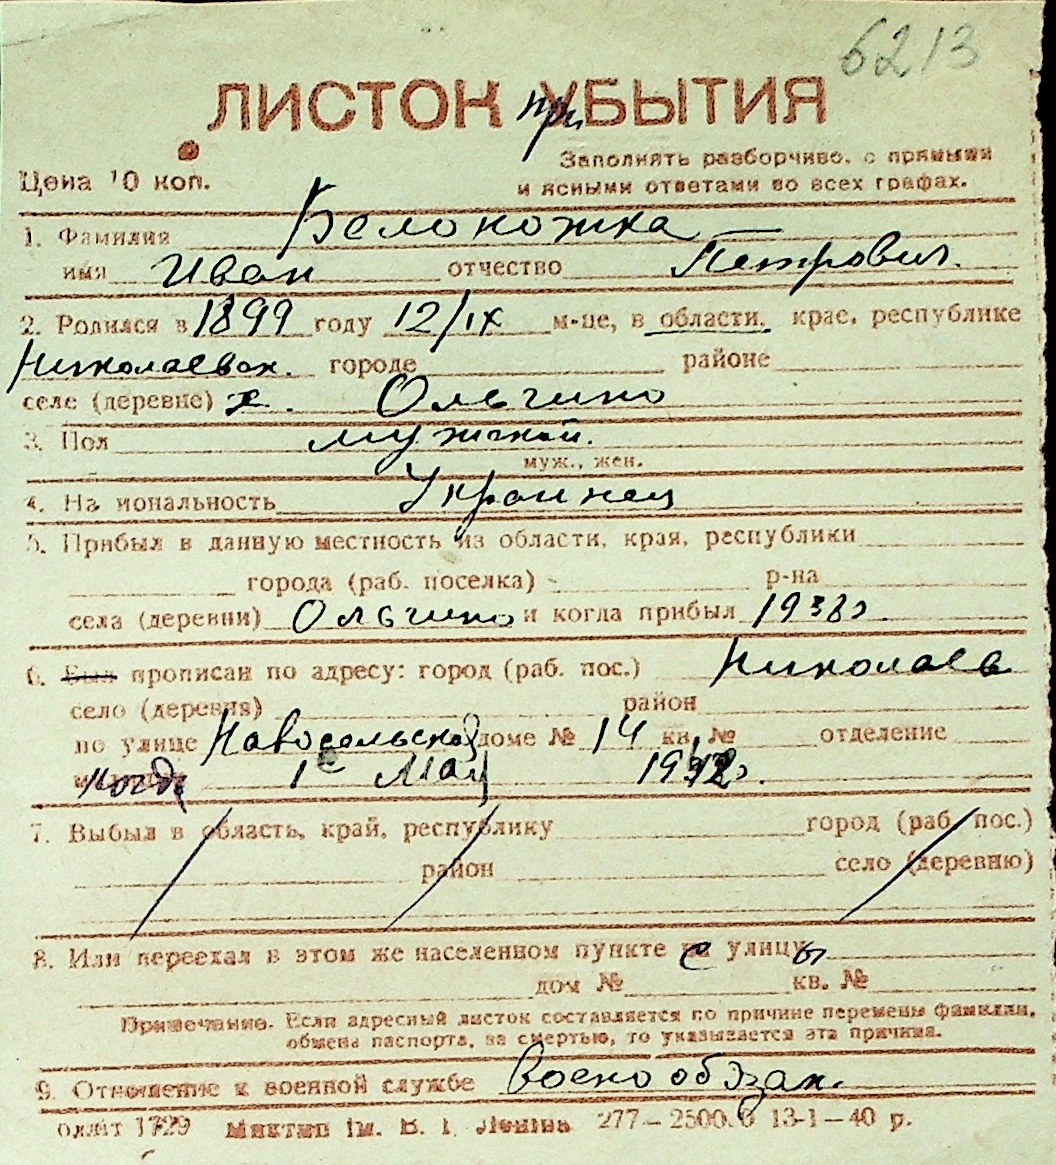 6213
ЛИСТОК при УБЫТИЯ
Цена 10 коп.
Заполнять разборчиво, с прямыми
и ясными ответами во всех графах.
1. Фамилия Белоножка
имя Иван отчество Петрович
2. Родился в 1899 году 12/IX м-це, в области, крае, республике
Николаевск. городе районе
селе (деревне) х. Ольгино
3. Пол мужской.
муж., жен.
4. На иональность Украинец
5. Прибыл в данную местность из области, края, республики
города (раб. поселка) р-на
села (деревни) Ольгино и когда прибыл 1938г
6. Был прописан по адресу: город (раб. пос.) Николаев
село (деревня) район
по улице Новосельской доме № 14 кв. № отделение
когда 1 е Мая 1942г.
7. Выбыл в область, край, республику город (раб. пос.)
район село (деревню)
8. Или переехал в этом же населенном пункте с улицы
дом № кв. №
Примечание. Если адресный листок составляется по причине перемены фамилии,
обмена паспорта, за смертью, то указывается эта причина.
9. Отношение к военной службе Военнообязан.
1729 ім. В. І. Леніна 277—2500.0 13-1—40 р.